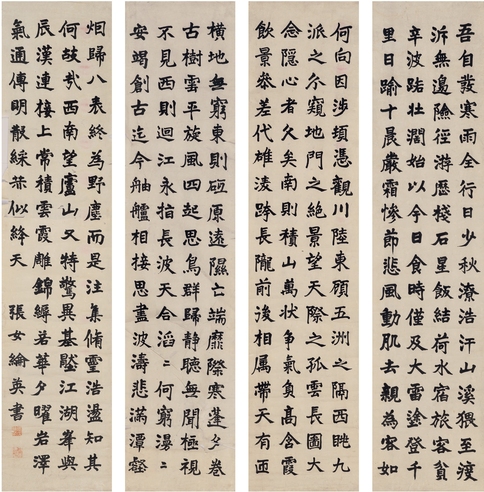 吾自發寒雨全行日少秋潦浩汗山溪猥至渡
泝無邊險徑游歷棧石星飯結荷水宿旅客貧
辛波路壯闊始以今日食時僅及大雷塗登千
里日踰十晨嚴霜慘節悲風動肌去親為客如
何向因涉頃憑觀川陸東顧五洲之隔西眺九
派之分窺地門之絕景望天際之孤雲長圖大
念隱心者久矣南則積山萬狀爭氣負高含霞
飲景參差代雄淩跨長隴前後相屬帶天有匝
橫地無窮東則砥原遠隰亡端靡際寒蓬夕卷
古樹雲平旋風四起思鳥群歸靜聽無聞極視
不見西則迴江永指長波天合滔〻何窮漫〻
安竭創古迄今舳艫相接思盡波濤悲滿潭壑
烟歸八表終為野塵而是注集脩靈浩盪知其
何故哉西南望廬山又特驚異基壓江湖峯與
辰漢連接上常積雲霞雕錦縟若華夕曜岩澤
氣通傳明散綵赫似絳天 張女綸英書